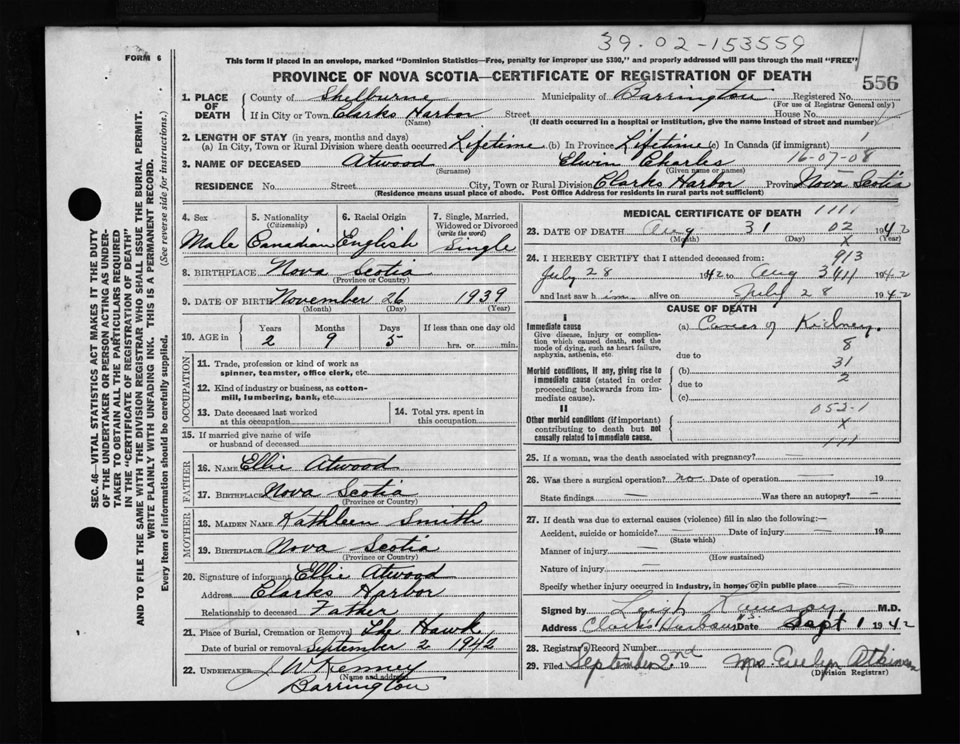 39.02-153559
FORM 6
This form if placed in an envelope, marked "Dominion Statistics—Free, penalty for improper use $300," and properly addressed will pass through the mail "FREE"
PROVINCE OF NOVA SCOTIA—CERTIFICATE OF REGISTRATION OF DEATH
556
SEC. 46—VITAL STATISTICS ACT MAKES IT THE DUTY
OF THE UNDERTAKER OR PERSON ACTING AS UNDER-
TAKER TO OBTAIN ALL THE PARTICULARS REQUIRED
IN THE "CERTIFICATE OF REGISTRATION OF DEATH"
AND TO FILE THE SAME WITH THE DIVISION REGISTRAR WHO SHALL ISSUE THE BURIAL PERMIT.
WRITE PLAINLY WITH UNFADING INK. THIS IS A PERMANENT RECORD.
Every item of information should be carefully supplied. (See reverse side for instructions.)
1. PLACE OF DEATH County of Shelburne Municipality of Barrington Registered No.
(For use of Registrar General only)
If in City or Town Clarks Harbor Street House No.
(Name) (If death occurred in a hospital or institution, give the name instead of street and number)
2. LENGTH OF STAY (in years, months and days)
(a) In City, Town or Rural Division where death occurred Lifetime (b) In Province Lifetime (c) In Canada (if immigrant)
16-07-08
3. NAME OF DECEASED Atwood Elwin Charles
(Surname) (Given name or names)
RESIDENCE No. Street City, Town or Rural Division Clarks Harbor Province Nova Scotia
(Residence means usual place of abode. Post Office Address for residents in rural parts not sufficient)
4. Sex 5. Nationality (Citizenship) 6. Racial Origin 7. Single, Married, Widowed or Divorced (write the word)
Male Canadian English Single
8. BIRTHPLACE Nova Scotia
(Province or Country)
9. DATE OF BIRTH November 26 1939
(Month) (Day) (Year)
10. AGE in Years Months Days If less than one day old
2 9 5 hrs. or min.
OCCUPATION
11. Trade, profession or kind of work as
spinner, teamster, office clerk, etc.
12. Kind of industry or business, as cotton-
mill, lumbering, bank, etc.
13. Date deceased last worked
at this occupation
14. Total yrs. spent in
this occupation
15. If married give name of wife
or husband of deceased
FATHER
16. NAME Ellie Atwood
17. BIRTHPLACE Nova Scotia
(Province or Country)
MOTHER
18. MAIDEN NAME Kathleen Smith
19. BIRTHPLACE Nova Scotia
(Province or Country)
20. Signature of informant Ellie Atwood
Address Clarks Harbor
Relationship to deceased Father
21. Place of Burial, Cremation or Removal The Hawk
Date of burial or removal September 2 1942
22. UNDERTAKER J W Kenney
(Name and address)
Barrington
MEDICAL CERTIFICATE OF DEATH 1111
23. DATE OF DEATH Aug 31 02 1942
(Month) (Day) x (Year)
24. I HEREBY CERTIFY that I attended deceased from: 913
July 28 1942 to Aug 1942
and last saw him alive on July 28 1942
CAUSE OF DEATH
I
Immediate cause (a) Cancer of Kidney.
Give disease, injury or complica-
tion which caused death, not the
mode of dying, such as heart failure,
asphyxia, asthenia, etc.
8
due to
Morbid conditions, if any, giving rise to
immediate cause (stated in order
proceeding backwards from im-
mediate cause).
(b) 31
due to 2
(c)
II
052-1
Other morbid conditions (if important)
contributing to death but not
causally related to immediate cause.
x
111
25. If a woman, was the death associated with pregnancy? —
26. Was there a surgical operation? no. Date of operation — 19
State findings — Was there an autopsy? —
27. If death was due to external causes (violence) fill in also the following:—
Accident, suicide or homicide? — Date of injury — 19
(State which)
Manner of injury —
(How sustained)
Nature of injury —
Specify whether injury occurred in industry, in home, or in public place —
Signed by Leigh M.D.
Address Clarks Harbour N.S. Date Sept 1 1942
28. Registrar's Record Number
29. Filed September 2nd 19 Mrs. Evelyn Atkinson
(Division Registrar)